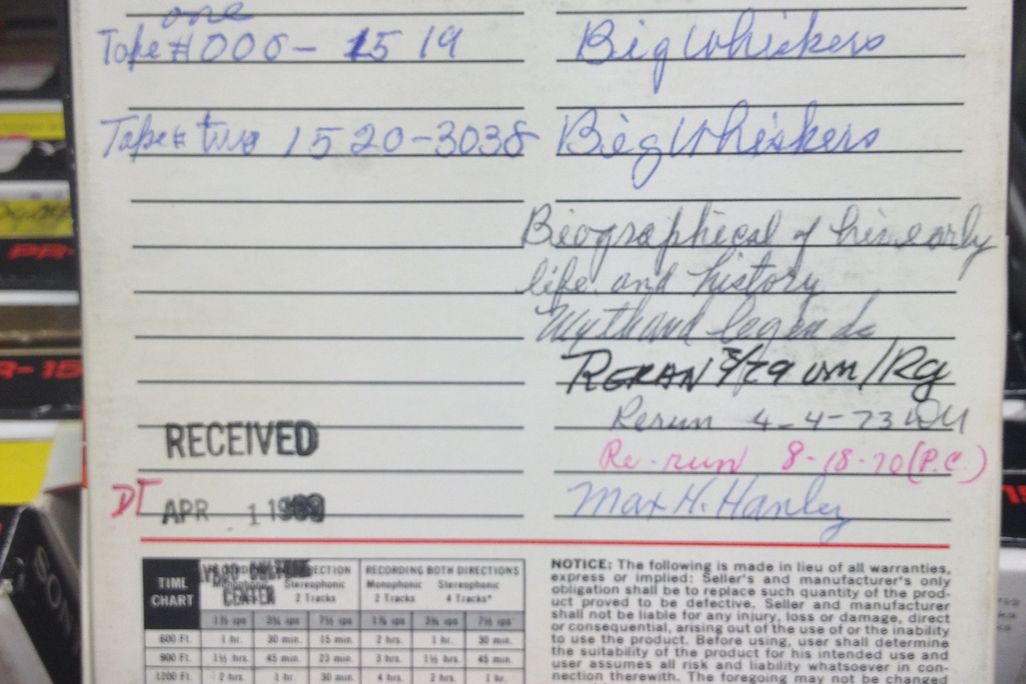 one
Tape # 000 - 1519 Big Whiskers
Tape # two 1520-3038 Big Whiskers
Biographical of his early
life and history
Myth and legends
RERAN 3/79 um/Rg
Rerun 4-4-73
Re-run 8-18-70 (P.C.)
Max H. Hanley
RECEIVED
DT APR 1
TIME
CHART
RECORDING BOTH DIRECTIONS
Monophonic Stereophonic Monophonic Stereophonic
2 Tracks 2 Tracks 4 Tracks*
1⅞ ips 3¾ ips 7½ ips 1⅞ ips 3¾ ips 7½ ips
600 Ft. 1 hr. 30 min. 15 min. 2 hrs. 1 hr. 30 min.
900 Ft. 1½ hrs. 45 min. 23 min. 3 hrs. 1½ hrs. 45 min.
1200 Ft. 2 hrs. 1 hr. 30 min. 4 hrs. 2 hrs. 1 hr.
NOTICE: The following is made in lieu of all warranties,
express or implied: Seller's and manufacturer's only
obligation shall be to replace such quantity of the prod-
uct proved to be defective. Seller and manufacturer
shall not be liable for any injury, loss or damage, direct
or consequential, arising out of the use of or the inability
to use the product. Before using, user shall determine
the suitability of the product for his intended use and
user assumes all risk and liability whatsoever in con-
nection therewith. The foregoing may not be changed